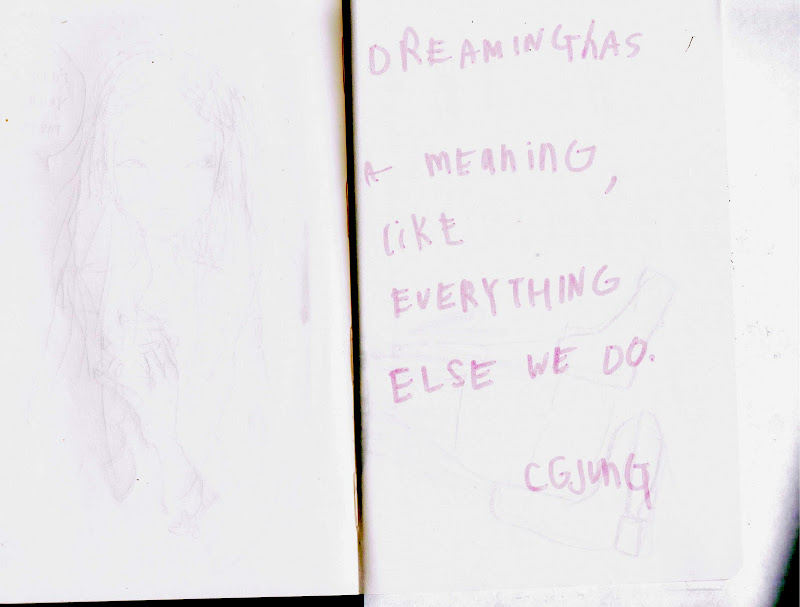 DREAMING hAS
A MEANING,
LIKE
EVERYTHING
ELSE WE DO.
CGJUNG